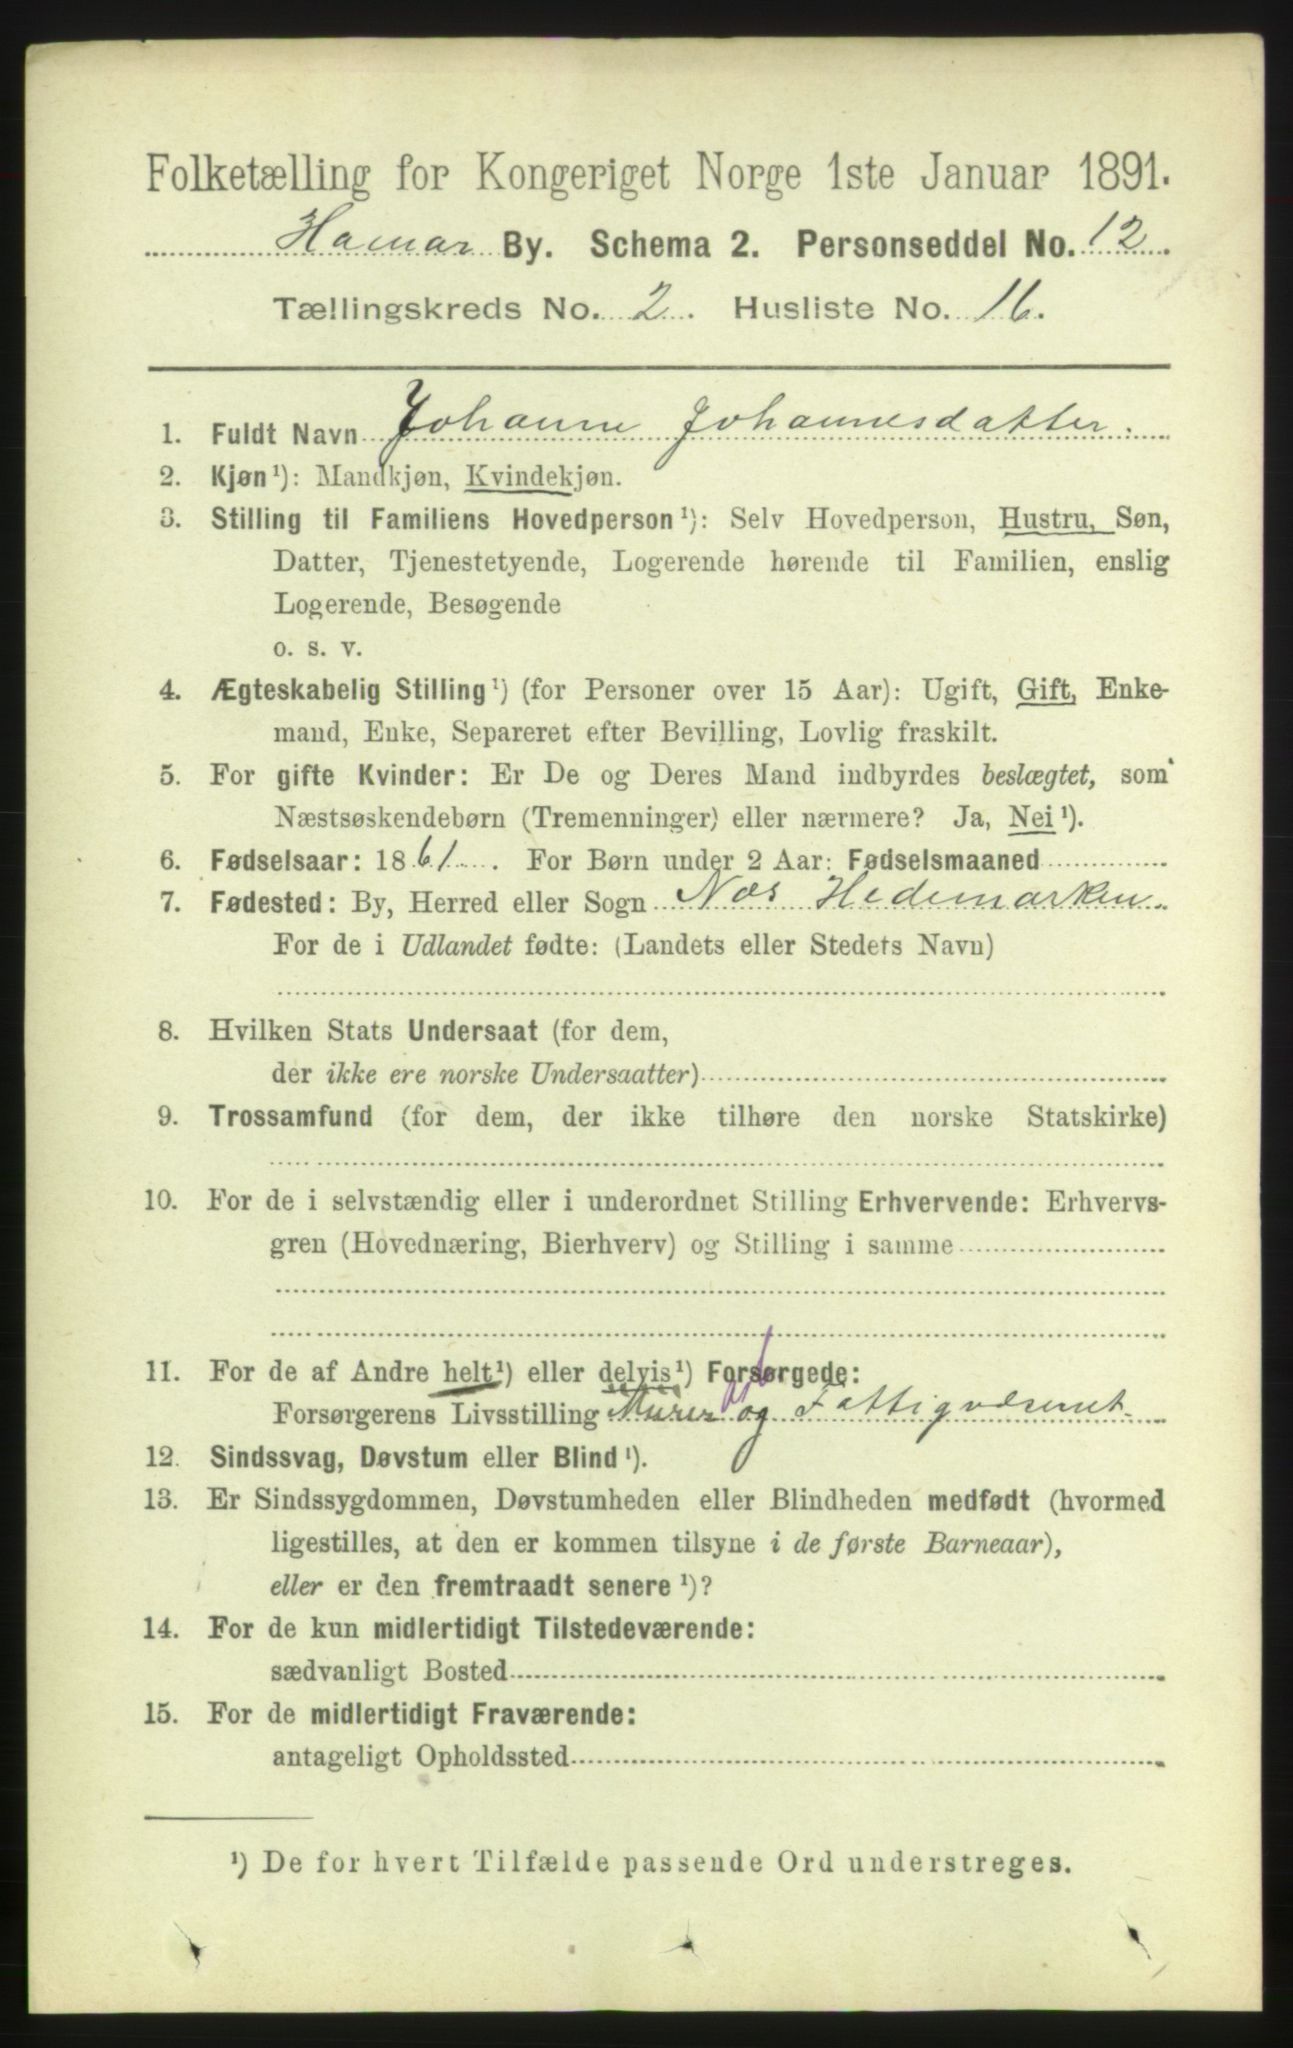 Folketælling for Kongeriget Norge 1ste Januar 1891.
Hamar By. Schema 2. Personseddel No. 12.
Tællingskreds No. 2. Husliste No. 16.
1. Fuldt Navn Johanne Johannesdatter.
2. Kjøn¹): Mandkjøn, Kvindekjøn.
3. Stilling til Familiens Hovedperson¹): Selv Hovedperson, Hustru, Søn,
Datter, Tjenestetyende, Logerende hørende til Familien, enslig
Logerende, Besøgende
o. s. v.
4. Ægteskabelig Stilling¹) (for Personer over 15 Aar): Ugift, Gift, Enke-
mand, Enke, Separeret efter Bevilling, Lovlig fraskilt.
5. For gifte Kvinder: Er De og Deres Mand indbyrdes beslægtet, som
Næstsøskendebørn (Tremenninger) eller nærmere? Ja, Nei¹).
6. Fødselsaar: 1861. For Børn under 2 Aar: Fødselsmaaned
7. Fødested: By, Herred eller Sogn Næs Hedemarken.
For de i Udlandet fødte: (Landets eller Stedets Navn)
8. Hvilken Stats Undersaat (for dem,
der ikke ere norske Undersaatter)
9. Trossamfund (for dem, der ikke tilhøre den norske Statskirke)
10. For de i selvstændig eller i underordnet Stilling Erhvervende: Erhvervs-
gren (Hovednæring, Bierhverv) og Stilling i samme
11. For de af Andre helt¹) eller delvis¹) Forsørgede:
Forsørgerens Livsstilling Murer og Fattigvæsenet.
12. Sindssvag, Døvstum eller Blind¹).
13. Er Sindssygdommen, Døvstumheden eller Blindheden medfødt (hvormed
ligestilles, at den er kommen tilsyne i de første Barneaar),
eller er den fremtraadt senere¹)?
14. For de kun midlertidigt Tilstedeværende:
sædvanligt Bosted
15. For de midlertidigt Fraværende:
antageligt Opholdssted
¹) De for hvert Tilfælde passende Ord understreges.